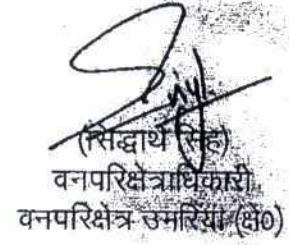 (सिद्धार्थ सिंह)
वनपरिक्षेत्राधिकारी
वनपरिक्षेत्र उमरिया (क्षे0)